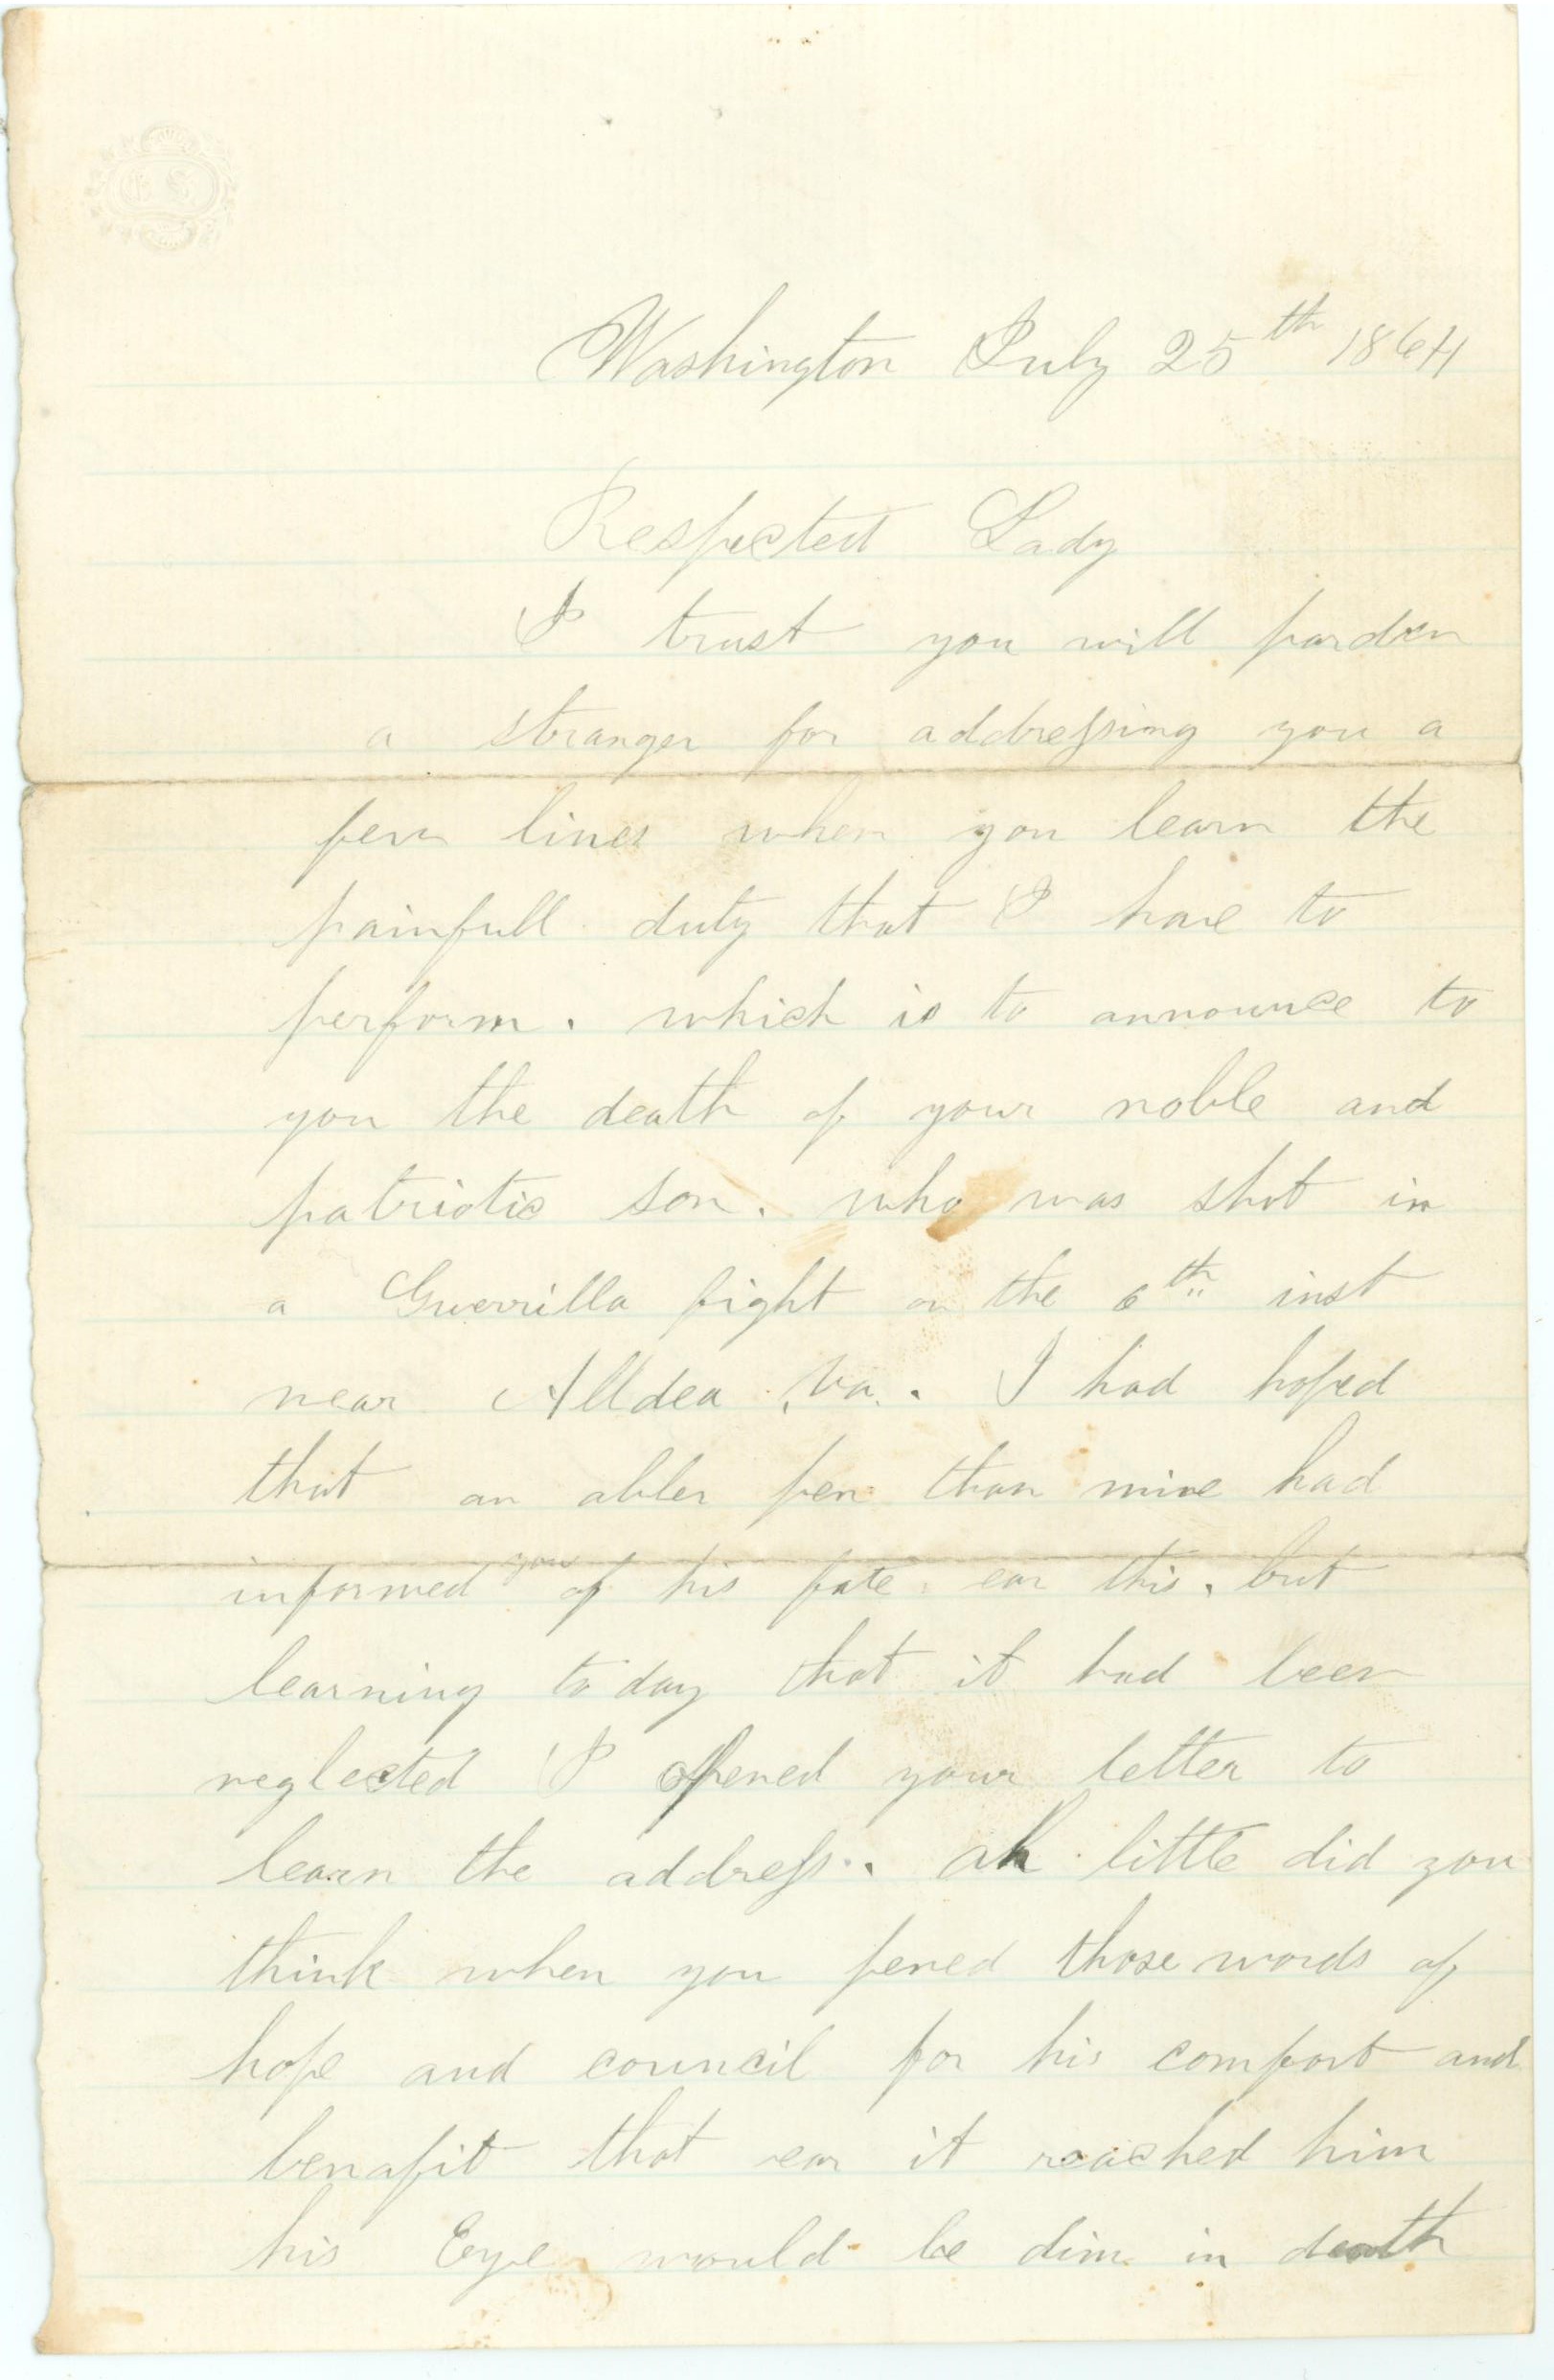 Washington July 25th 1864
Respected Lady
I trust you will pardon
a stranger for addressing you a
few lines when you learn the
painfull duty that I have to
perform. which is to announce to
you the death of your noble and
patriotic son. who was shot in
a Guerrilla fight on the 6th inst
near Alldea, Va. I had hoped
that an abler pen than mine had
informed you of his fate ear this. but
learning to day that it had been
neglected I opened your letter to
learn the address. ah little did you
think when you pened those words of
hope and council for his comfort and
benafit that ear it reached him
his Eye would be dim in death